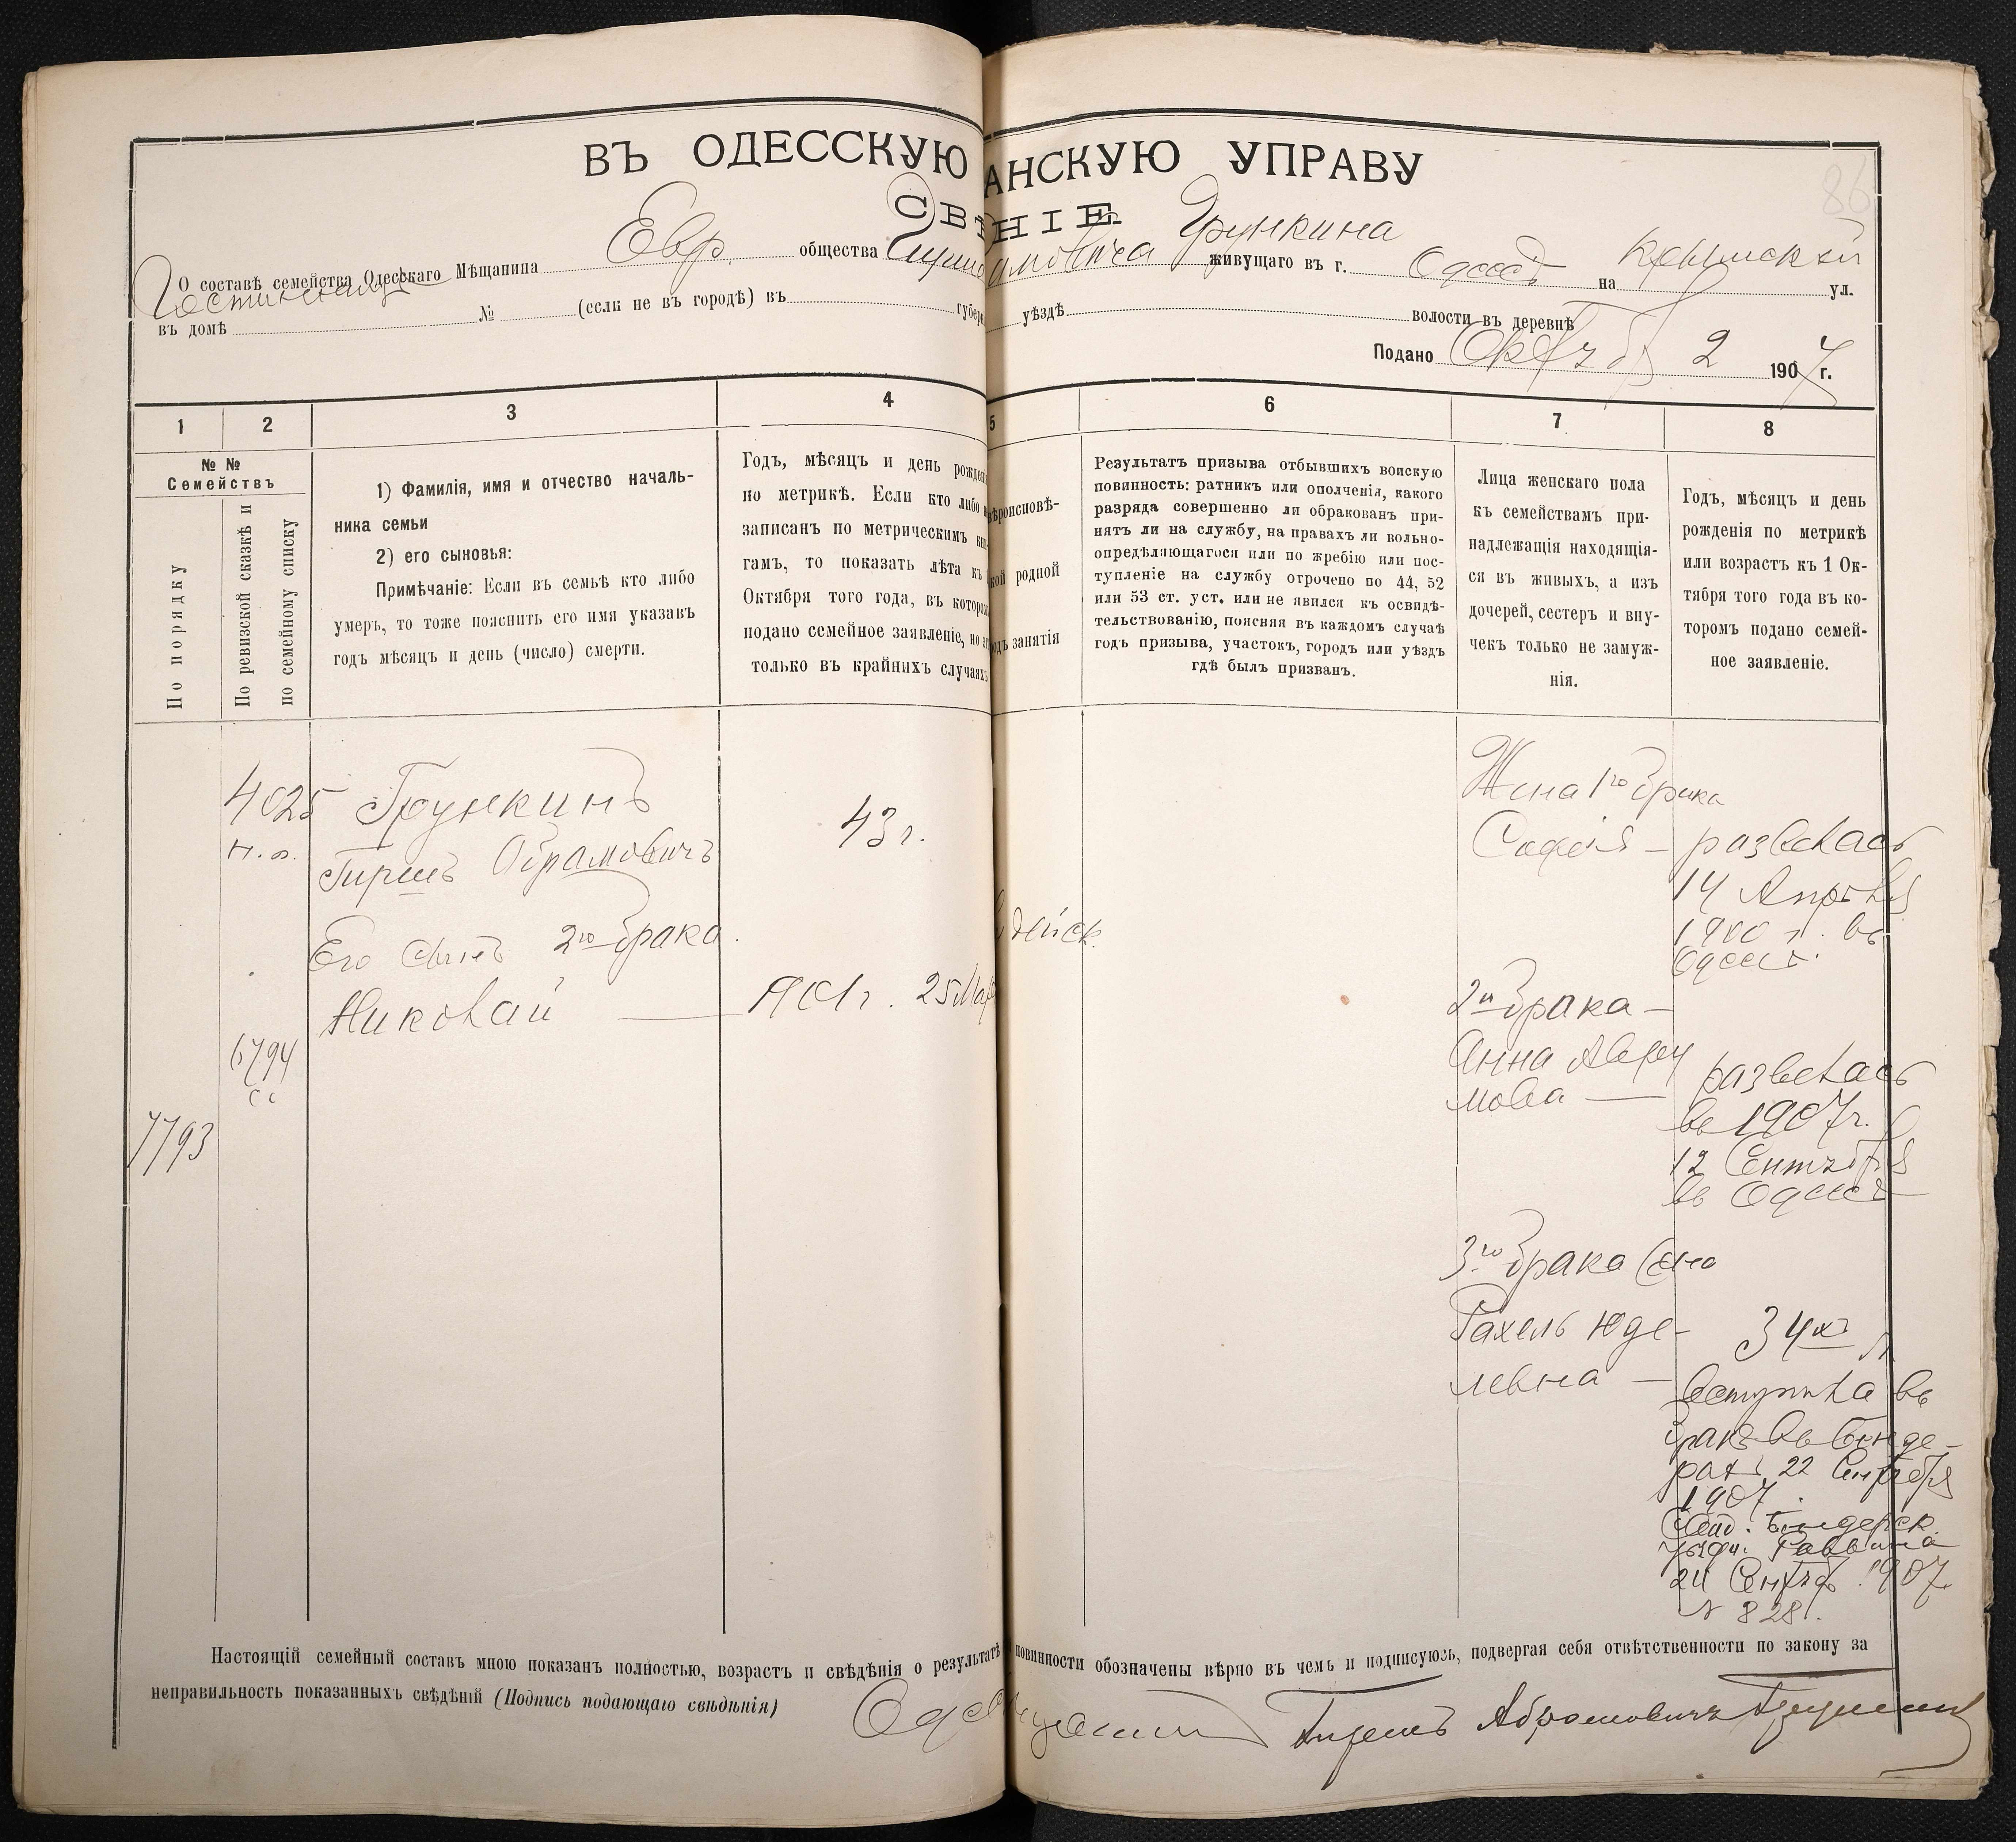 ВЪ ОДЕССКУЮ АНСКУЮ УПРАВУ
СВѢ НІЕ
О составѣ семейства Одесскаго Мѣщанина Евр. общества Грункина живущаго въ г. Одессѣ на ул.
въ домѣ № (если не въ городѣ) въ губер уѣздѣ волости въ деревнѣ
Подано Октябр 2 1907 г.
86
1 2 3 4 5 6 7 8
№ №
Семействъ
По порядку
По ревизской сказкѣ и
по семейному списку
1) Фамилія, имя и отчество началь-
ника семьи
2) его сыновья:
Примѣчаніе: Если въ семьѣ кто либо
умеръ, то тоже пояснить его имя указавъ
годъ мѣсяцъ и день (число) смерти.
Годъ, мѣсяцъ и день рожден
по метрикѣ. Если кто либо
записанъ по метрическимъ кни
гамъ, то показать лѣта къ
Октября того года, въ которо
подано семейное заявленіе, но
только въ крайнихъ случаяхъ
ѣроисповѣ-
кой родной
одъ занятія
Результатъ призыва отбывшихъ воискую
повинность: ратникъ или ополченія, какого
разряда совершенно ли обракованъ при-
нятъ ли на службу, на правахъ ли вольно-
опредѣляющагося или по жребію или пос-
тупленіе на службу отрочено по 44, 52
или 53 ст. уст. или не явился къ освидѣ-
тельствованію, поясняя въ каждомъ случаѣ
годъ призыва, участокъ, городъ или уѣздъ
гдѣ былъ призванъ.
Лица женскаго пола
къ семействамъ при-
надлежащія находящія-
ся въ живыхъ, а изъ
дочерей, сестеръ и вну-
чекъ только не замуж-
нія.
Годъ, мѣсяцъ и день
рожденія по метрикѣ
или возрастъ къ 1 Ок-
тября того года въ ко-
торомъ подано семей-
ное заявленіе.
4025
н. о.
6794
сс
7793
Грункинъ
Гиршъ Абрамовичъ
Его сынъ 2го брака
Николай
43 г.
1901 г. 25 Ма
ейск.
Жена 1го брака
Софія —
развелась
14 Апрѣля
1900 г. въ
Одессѣ.
2й брака —
Анна Авра
мова —
развелась
въ 1907 г.
12 Сентября
въ Одессѣ
3го брака
Рахель Юде-
левна —
34хъ л
вступила въ
бракъ въ Бенде-
рахъ 22 Сентября
1907
Бендерск.
Раввина
24 Сентяб. 1907
№ 828.
Настоящій семейный составъ мною показанъ полностью, возрастъ и свѣдѣнія о результатѣ повинности обозначены вѣрно въ чемъ и подписуюсь, подвергая себя отвѣтственности по закону за
неправильность показанныхъ свѣдѣній (Подпись подающаго свѣдѣнія)
Гиршъ Абромовичъ Грункинъ